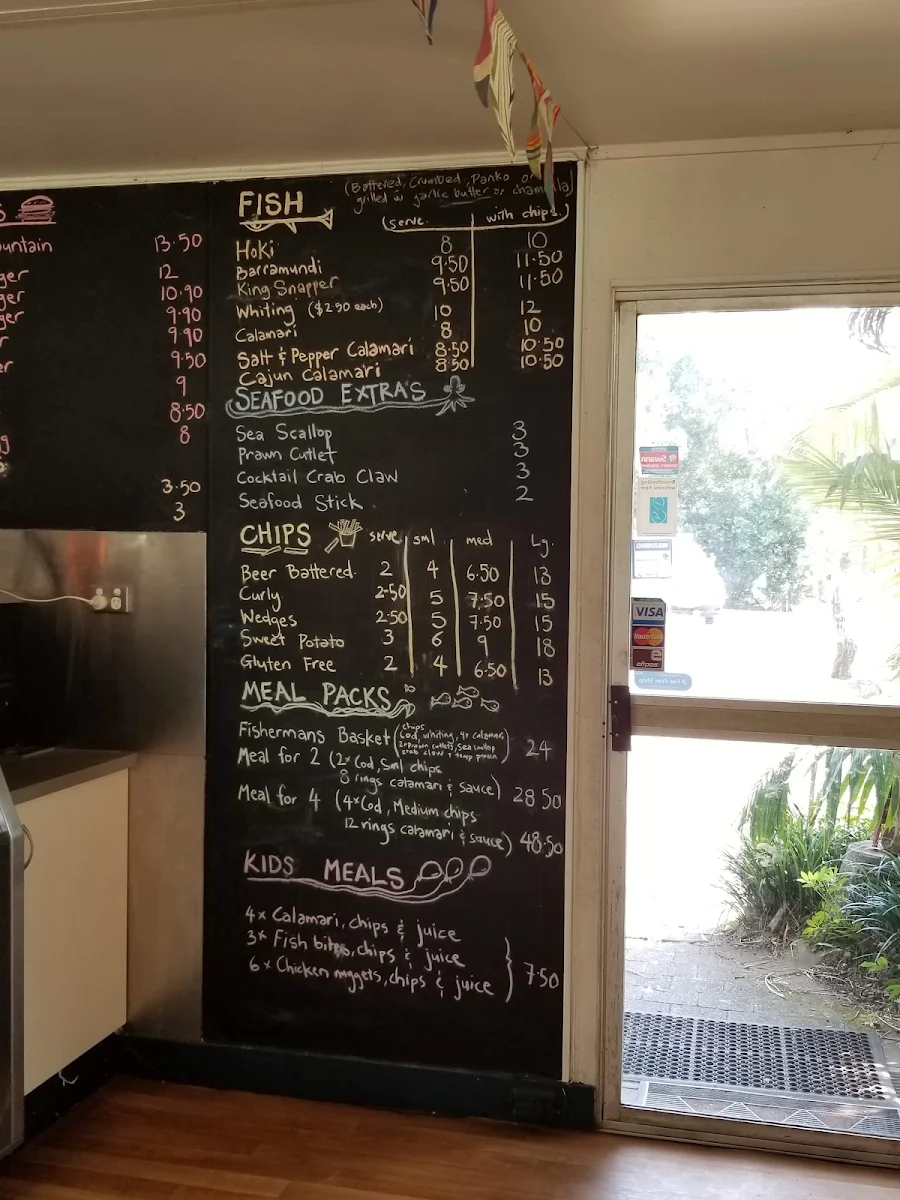 S
untain 13.50
ger 12
ger 10.90
ger 9.90
r 9.90
er 9.50
9
8.50
g 8
3.50
3
FISH (Battered, Crumbed, Panko or
grilled w garlic butter or
serve. with chips
Hoki 8 10
Barramundi 9.50 11.50
King Snapper 9.50 11.50
Whiting ($2.50 each) 10 12
Calamari 8 10
Salt & Pepper Calamari 8.50 10.50
Cajun Calamari 8.50 10.50
SEAFOOD EXTRA'S
Sea Scallop 3
Prawn Cutlet 3
Cocktail Crab Claw 3
Seafood Stick 2
CHIPS serve sml med Lg.
Beer Battered 2 4 6.50 13
Curly 2.50 5 7.50 15
Wedges 2.50 5 7.50 15
Sweet Potato 3 6 9 18
Gluten Free 2 4 6.50 13
MEAL PACKS
Fishermans Basket (chips
Cod, whiting, 4x calamari
2x Prawn cutlets, Sea scallop
crab claw + prawn) 24
Meal for 2 (2x Cod, Sml chips
8 rings calamari & sauce) 28.50
Meal for 4 (4x Cod, Medium chips
12 rings calamari & sauce) 48.50
KIDS MEALS
4x Calamari, chips & juice
3x Fish bites, chips & juice
6x Chicken nuggets, chips & juice } 7.50
Swann
VISA
MasterCard